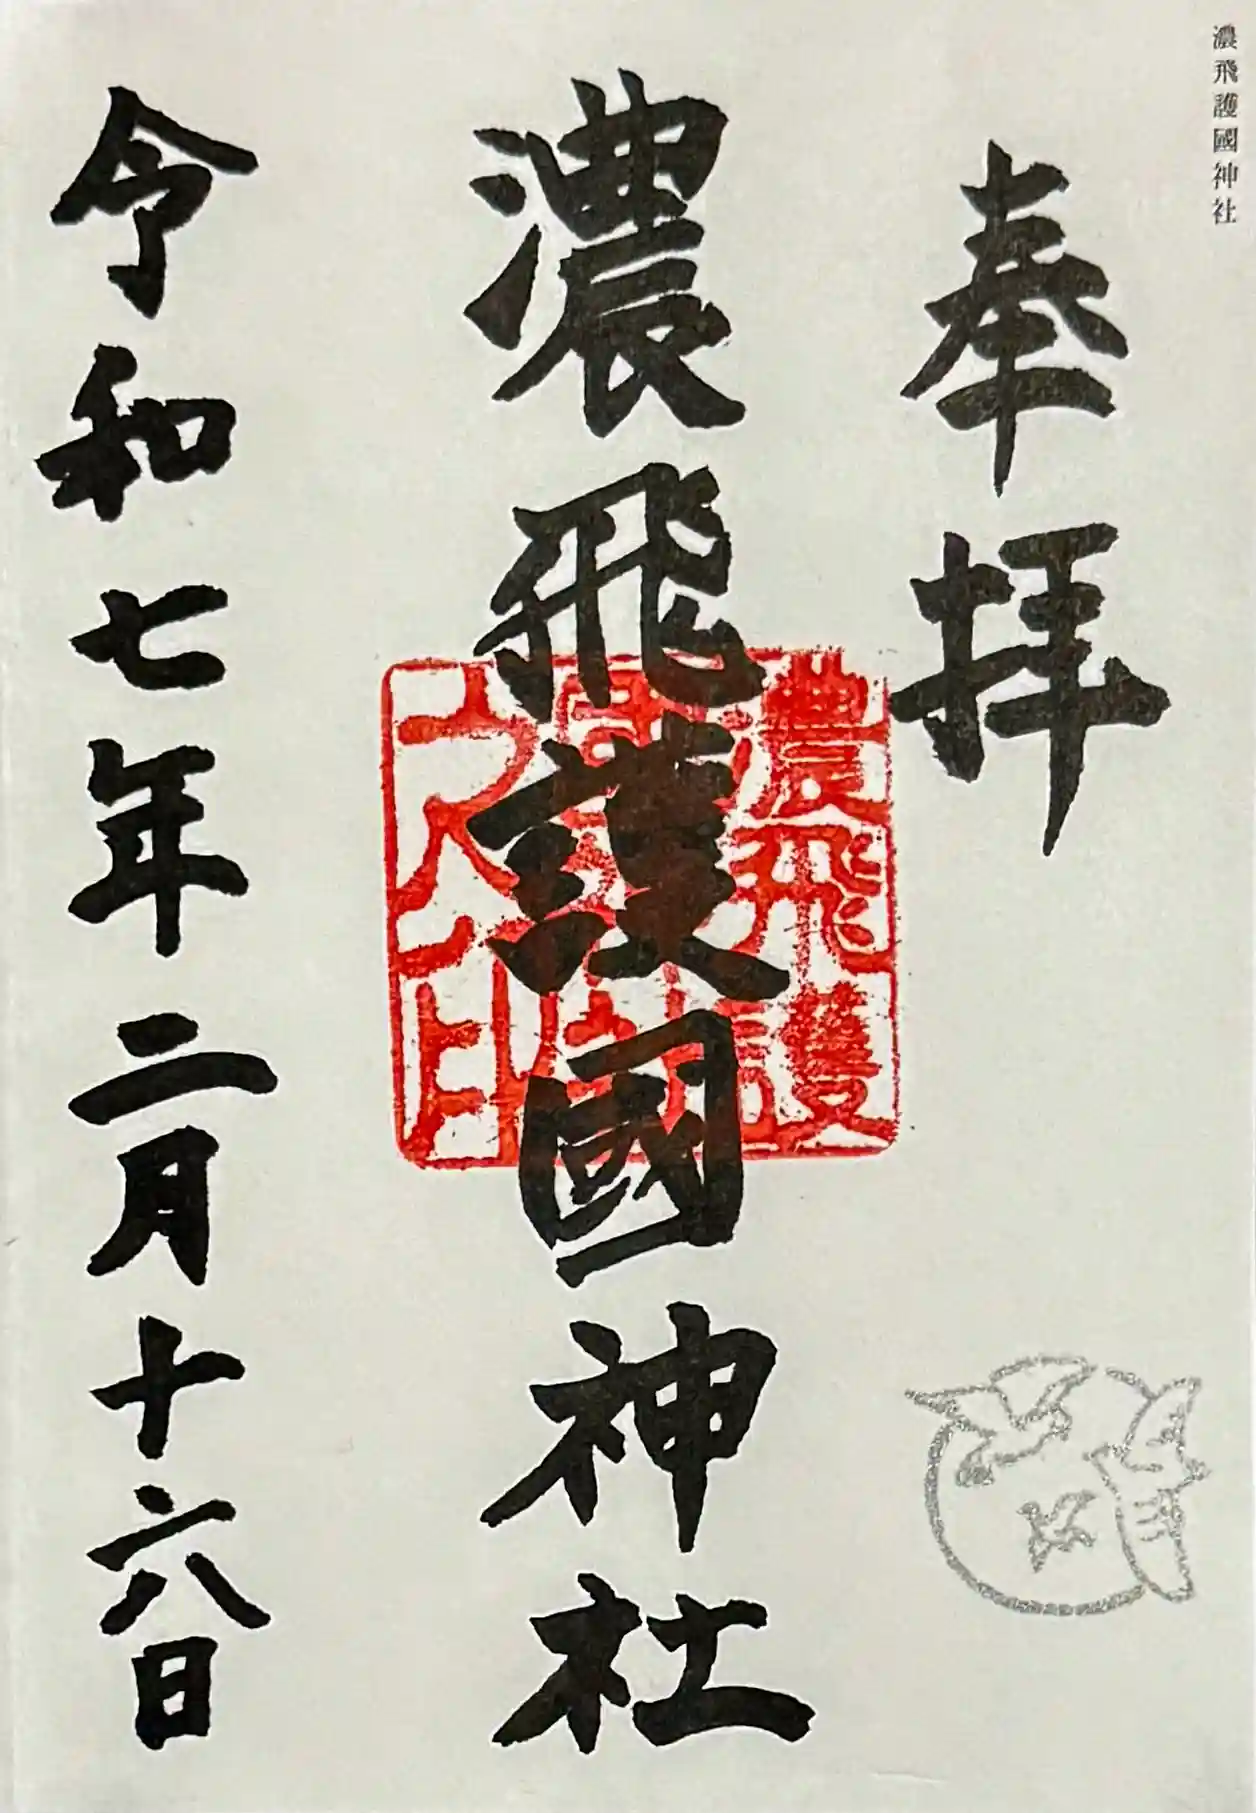 濃飛護國神社
奉拝
濃飛護國神社
令和七年二月十六日
濃飛護
國神社
之印